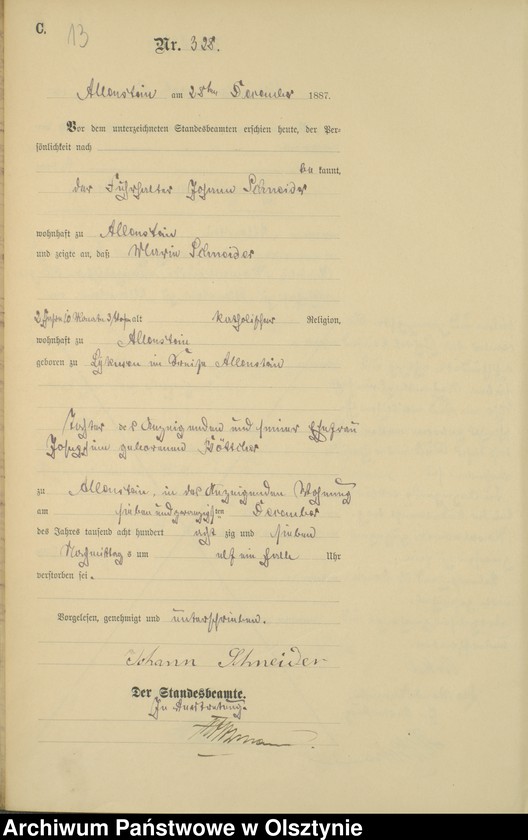 C.
13
Nr. 328.
Allenstein am 28ten December 1887.
Vor dem unterzeichneten Standesbeamten erschien heute, der Per-
sönlichkeit nach
bekannt,
der Fuhrhalter Johann Schneider
wohnhaft zu Allenstein
und zeigte an, daß Maria Schneider
2 Jahre 10 Monate 3 Tage alt katholischer Religion,
wohnhaft zu Allenstein
geboren zu im Kreise Allenstein
Tochter des Anzeigenden und seiner Ehefrau
Josephine geborenen Böttcher
zu Allenstein, in des Anzeigenden Wohnung
am sieben und zwanzigsten December
des Jahres tausend acht hundert acht zig und sieben
Nachmittags um elf ein halb Uhr
verstorben sei.
Vorgelesen, genehmigt und unterschrieben.
Johann Schneider
Der Standesbeamte.
In Vertretung.
Archiwum Państwowe w Olsztynie